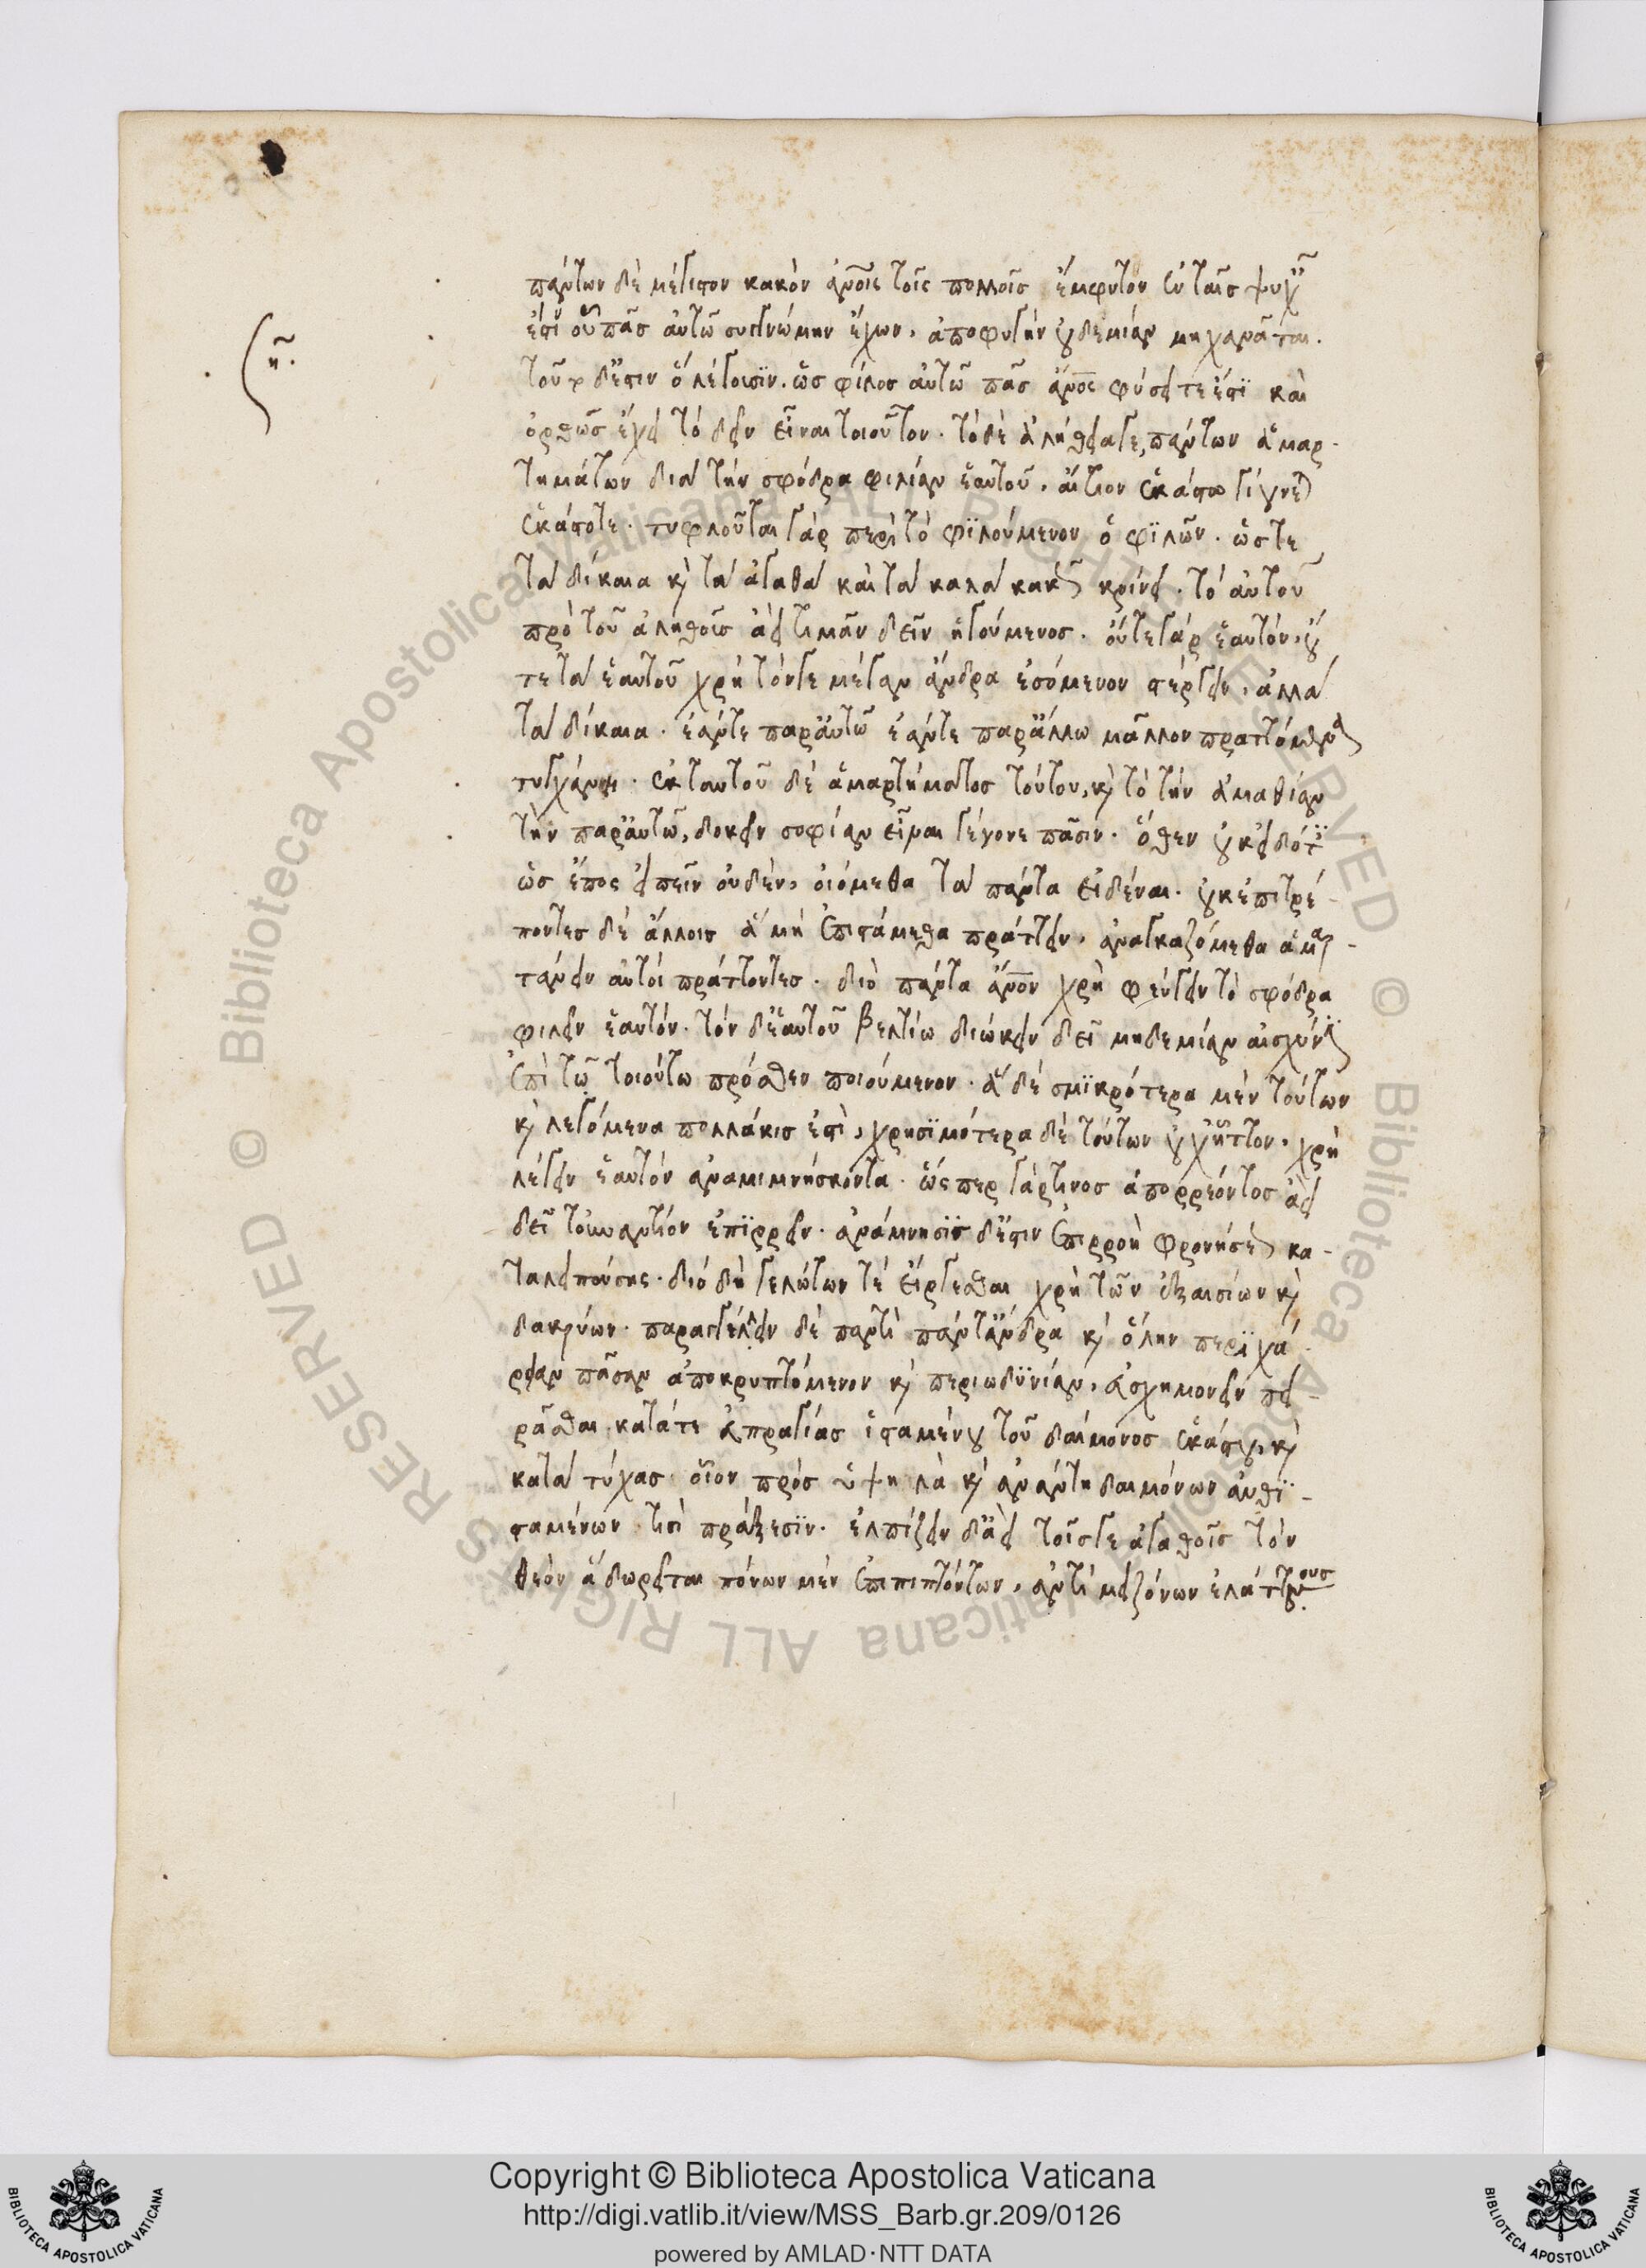 πάντων δὲ μέγιστον κακὸν ἀνοις τοῖς πολλοῖς ἔμφυτον ἐν ταῖς ψυχ
ἐστὶ οὗ πᾶς αὑτῶ συγγνώμην ἔχων, ἀποφυγὴν οὐδεμίαν μηχανᾶται.
η.
τοῦτο δ' ἔστιν ὃ λέγουσϊν. ὡς φίλος αὑτῶ πᾶς ἄνος φύσει τε ἐστϊ καὶ
ὀρθῶς ἔχει τὸ δεῖν εἶναι τοιοῦτον. τὸ δὲ ἀληθείαγε, πάντων ἁμαρ-
τημάτων διὰ τὴν σφόδρα φιλίαν ἑαυτοῦ. αἴτιον ἑκάστω γίγνετ
ἑκάστοτε. τυφλοῦται γὰρ περὶ τὸ φϊλούμενον ὁ φϊλῶν. ὥστε
τὰ δίκαια κὶ τὰ ἀγαθὰ καὶ τὰ καλὰ κακῶς κρίνει. τὸ αὑτοῦ
πρὸ τοῦ ἀληθοῦς ἀεὶ τιμᾶν δεῖν ἡγούμενος. οὔτε γὰρ ἑαυτὸν, οὔ
τε τὰ ἑαυτοῦ χρὴ τόνγε μέγαν ἄνδρα ἐσόμενον στέργειν. ἀλλὰ
τὰ δίκαια. ἐάντε παρ' αὑτῶ ἐάντε παρ' ἄλλω μᾶλλον πραττόμενα
τυγχάνη. ἐκ ταυτοῦ δὲ ἁμαρτήματος τούτου, κὶ τὸ τὴν ἀμαθίαν
τὴν παρ' αὑτῶ, δοκεῖν σοφίαν εἶναι γέγονε πᾶσιν. ὅθεν οὐκ εἰδότ
ὡς ἔπος εἰπεῖν οὐδὲν, οἰόμεθα τὰ πάντα εἰδέναι. οὐκ ἐπιτρέ-
ποντες δὲ ἄλλοις ἃ μὴ ἐπιστάμεθα πράττειν, ἀναγκαζόμεθα ἁμαρ-
τάνειν αὐτοὶ πράττοντες. διὸ πάντα ἄνον χρὴ φεύγειν τὸ σφόδρα
φιλεῖν ἑαυτόν. τὸν δ' ἑαυτοῦ βελτίω διώκειν δεῖ μηδεμίαν αἰσχύνην
ἐπὶ τῶ τοιούτω πρόσθεν ποιούμενον. ἃ δὲ σμϊκρότερα μὲν τούτων
κὶ λεγόμενα πολλάκις ἐστὶ, χρησϊμότερα δὲ τούτων οὐχ' ἧττον, χρὴ
λέγειν ἑαυτὸν ἀναμιμνήσκοντα. ὥσπερ γάρ τινος ἀπορρέοντος ἀεὶ
δεῖ τοὐναντίον ἐπϊρρεῖν. ἀνάμνησϊς δ' ἔστιν ἐπιρροὴ φρονήσεως κα-
ταλειπούσης. διὸ δὴ γελώτων τὲ εἴργεσθαι χρὴ τῶν ἐξαισίων κὶ
δακρύων. παραγγέλλειν δὲ παντὶ πάντ' ἄνδρα κὶ ὅλην περϊχά-
ρειαν πᾶσαν ἀποκρυπτόμενον κὶ περιωδϋνίαν, ἀσχημονεῖν πει-
ρᾶσθαι κατά τε ἀπραγίας ἱσταμένου τοῦ δαίμονος ἑκάστου, κὶ
κατὰ τύχας οἷον πρὸς ὑψηλὰ κὶ ἀνάντη δαιμόνων ἀνθϊ-
σταμένων τισὶ πράξεσϊν. ἐλπίζειν δ' ἀεὶ τοῖσγε ἀγαθοῖς τὸν
θεὸν ἃ δωρεῖται πόνων μὲν ἐπιπιπτόντων, ἀντὶ μειζόνων ἐλάττους
Copyright © Biblioteca Apostolica Vaticana
http://digi.vatlib.it/view/MSS_Barb.gr.209/0126
powered by AMLAD·NTT DATA
BIBLIOTECA APOSTOLICA VATICANA
BIBLIOTECA APOSTOLICA VATICANA
© Biblioteca Apostolica Vaticana ALL RIGHTS RESERVED
© Biblioteca Apostolica Vaticana ALL RIGHTS RESERVED